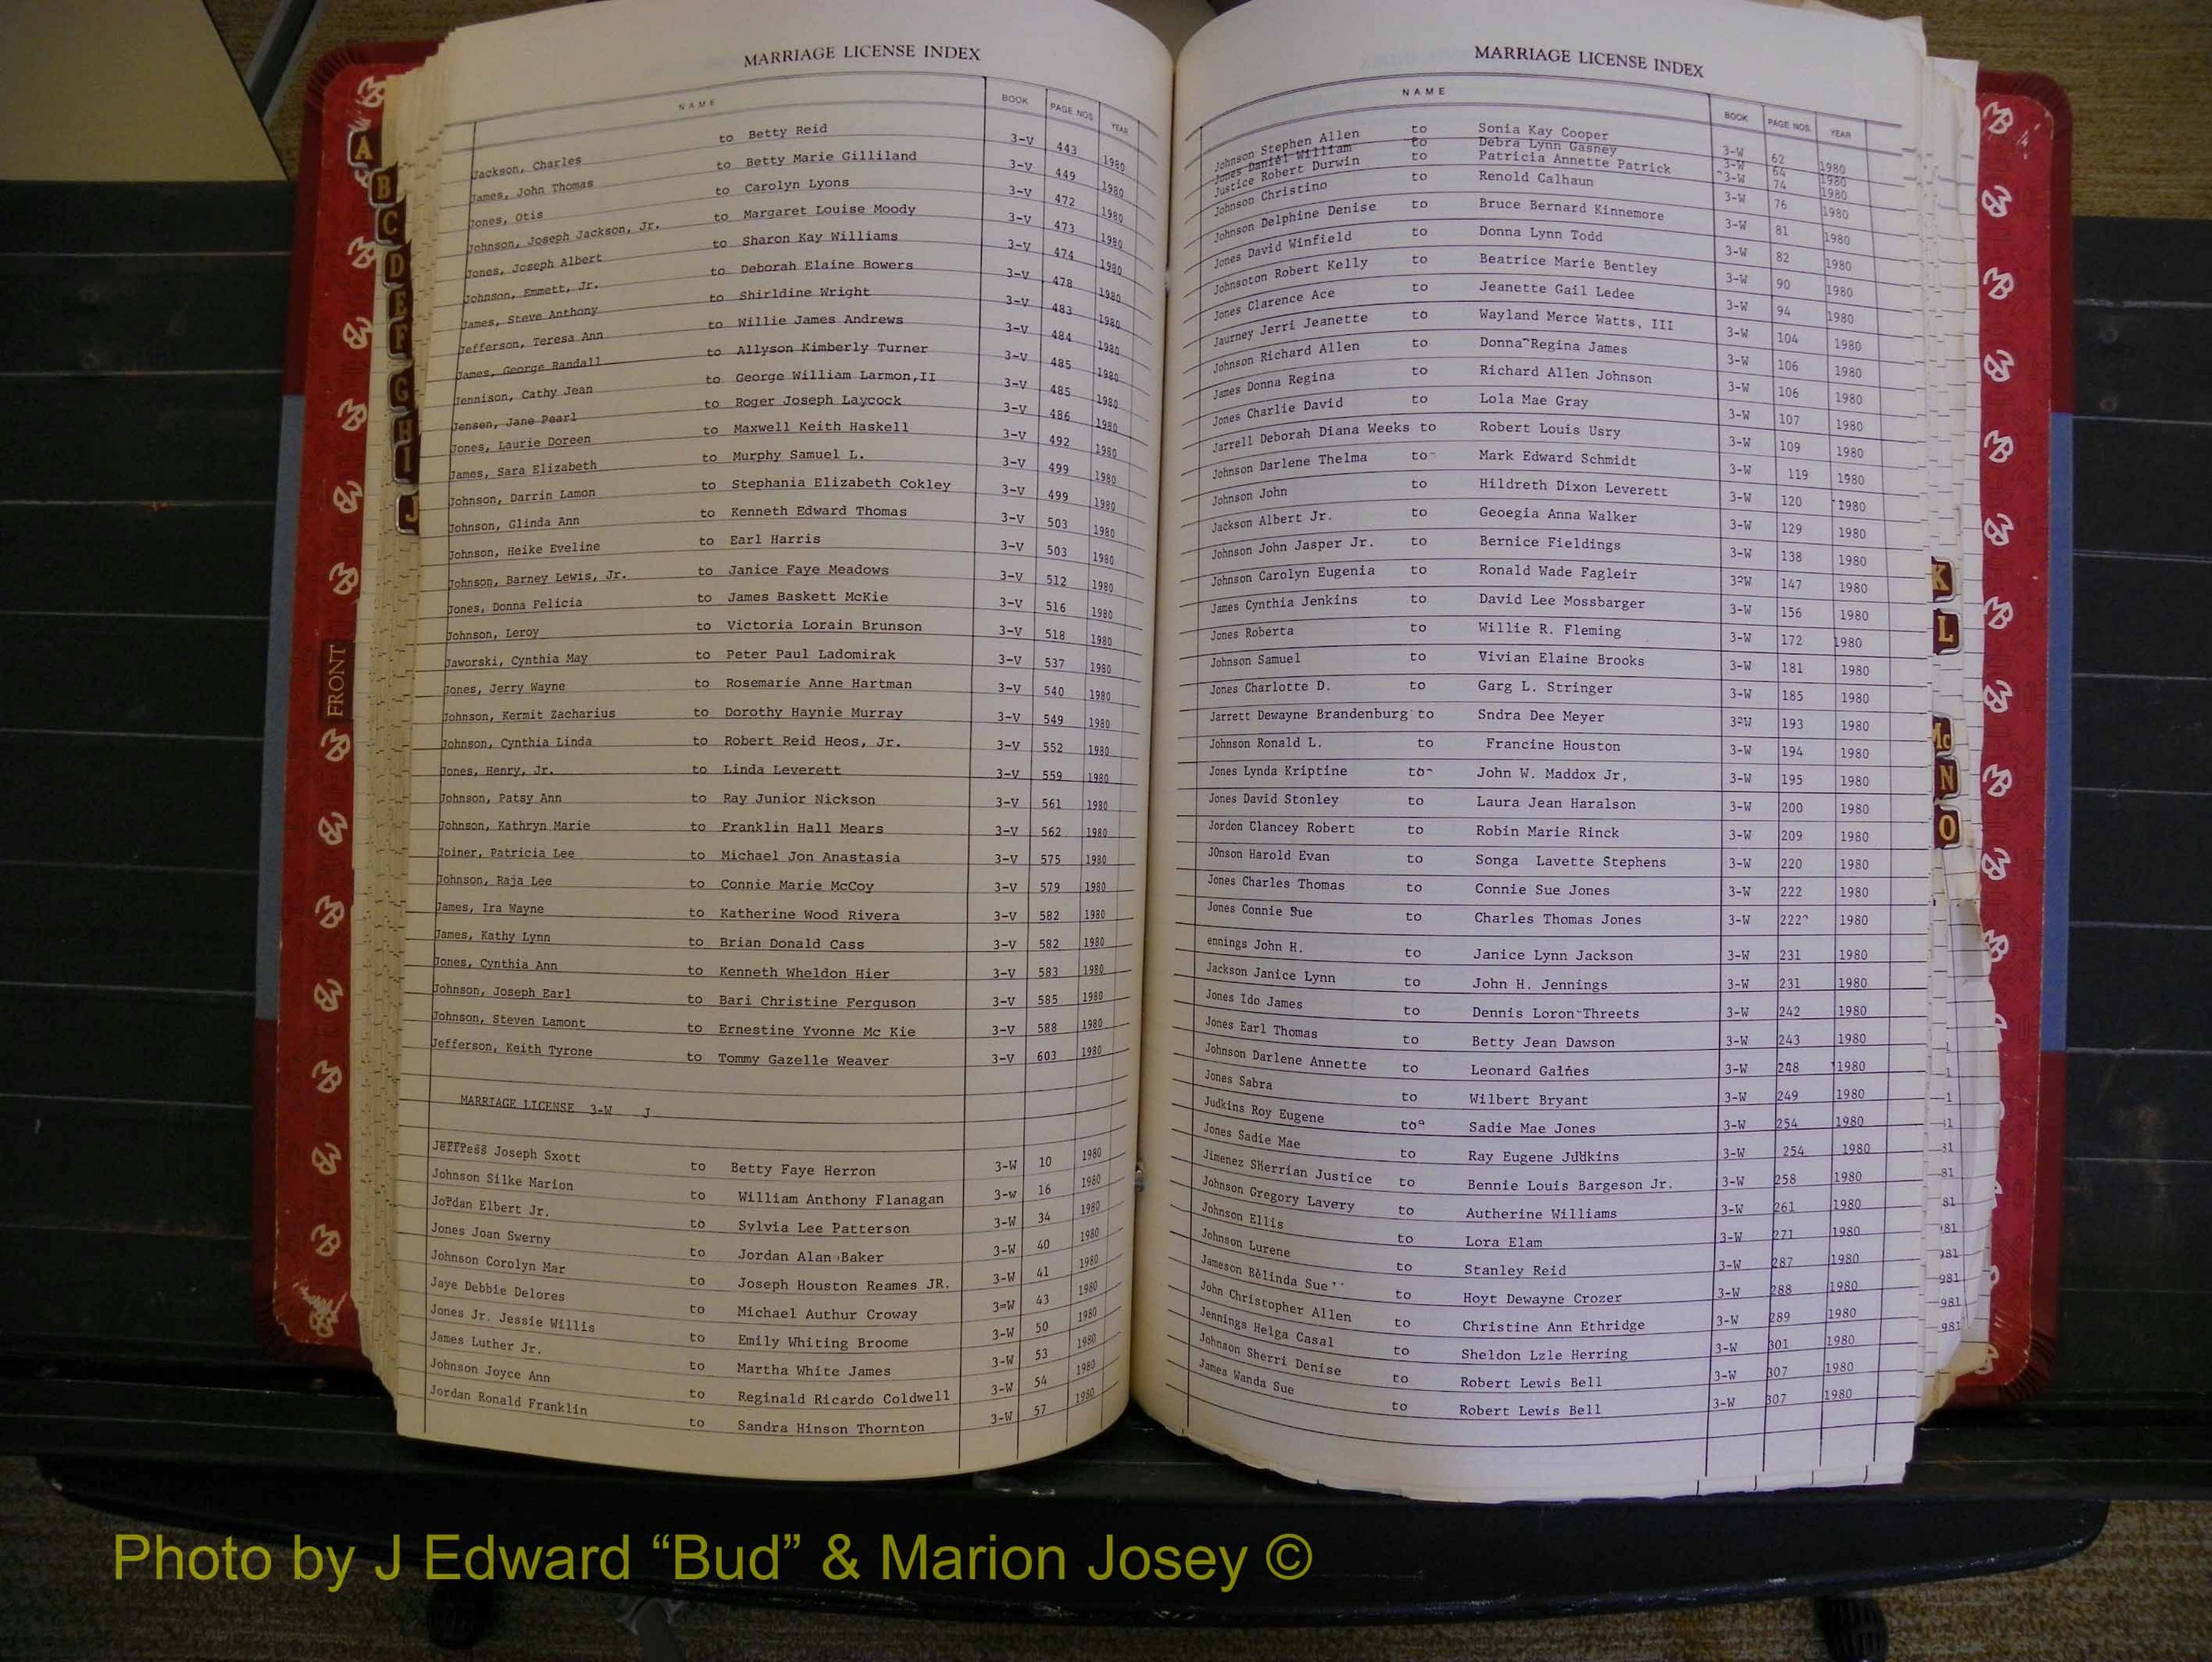 MARRIAGE LICENSE INDEX
NAME BOOK PAGE NOS. YEAR
Jackson, Charles to Betty Reid 3-V 443 1980
James, John Thomas to Betty Marie Gilliland 3-V 449 1980
Jones, Otis to Carolyn Lyons 3-V 472 1980
Johnson, Joseph Jackson, Jr. to Margaret Louise Moody 3-V 473 1980
Jones, Joseph Albert to Sharon Kay Williams 3-V 474 1980
Johnson, Emmett, Jr. to Deborah Elaine Bowers 3-V 478 1980
James, Steve Anthony to Shirldine Wright 3-V 483 1980
Jefferson, Teresa Ann to Willie James Andrews 3-V 484 1980
James, George Randall to Allyson Kimberly Turner 3-V 485 1980
Jennison, Cathy Jean to George William Larmon,II 3-V 485 1980
Jensen, Jane Pearl to Roger Joseph Laycock 3-V 486 1980
Jones, Laurie Doreen to Maxwell Keith Haskell 3-V 492 1980
James, Sara Elizabeth to Murphy Samuel L. 3-V 499 1980
Johnson, Darrin Lamon to Stephania Elizabeth Cokley 3-V 499 1980
Johnson, Glinda Ann to Kenneth Edward Thomas 3-V 503 1980
Johnson, Heike Eveline to Earl Harris 3-V 503 1980
Johnson, Barney Lewis, Jr. to Janice Faye Meadows 3-V 512 1980
Jones, Donna Felicia to James Baskett McKie 3-V 516 1980
Johnson, Leroy to Victoria Lorain Brunson 3-V 518 1980
Jaworski, Cynthia May to Peter Paul Ladomirak 3-V 537 1980
Jones, Jerry Wayne to Rosemarie Anne Hartman 3-V 540 1980
Johnson, Kermit Zacharius to Dorothy Haynie Murray 3-V 549 1980
Johnson, Cynthia Linda to Robert Reid Heos, Jr. 3-V 552 1980
Jones, Henry, Jr. to Linda Leverett 3-V 559 1980
Johnson, Patsy Ann to Ray Junior Nickson 3-V 561 1980
Johnson, Kathryn Marie to Franklin Hall Mears 3-V 562 1980
Joiner, Patricia Lee to Michael Jon Anastasia 3-V 575 1980
Johnson, Raja Lee to Connie Marie McCoy 3-V 579 1980
James, Ira Wayne to Katherine Wood Rivera 3-V 582 1980
James, Kathy Lynn to Brian Donald Cass 3-V 582 1980
Jones, Cynthia Ann to Kenneth Wheldon Hier 3-V 583 1980
Johnson, Joseph Earl to Bari Christine Ferguson 3-V 585 1980
Johnson, Steven Lamont to Ernestine Yvonne Mc Kie 3-V 588 1980
Jefferson, Keith Tyrone to Tommy Gazelle Weaver 3-V 603 1980
MARRIAGE LICENSE 3-W J
Jeffress Joseph Sxott to Betty Faye Herron 3-W 10 1980
Johnson Silke Marion to William Anthony Flanagan 3-w 16 1980
Jordan Elbert Jr. to Sylvia Lee Patterson 3-W 34 1980
Jones Joan Swerny to Jordan Alan Baker 3-W 40 1980
Johnson Corolyn Mar to Joseph Houston Reames JR. 3-W 41 1980
Jaye Debbie Delores to Michael Authur Croway 3=W 43 1980
Jones Jr. Jessie Willis to Emily Whiting Broome 3-W 50 1980
James Luther Jr. to Martha White James 3-W 53 1980
Johnson Joyce Ann to Reginald Ricardo Coldwell 3-W 54 1980
Jordan Ronald Franklin to Sandra Hinson Thornton 3-W 57 1980
MARRIAGE LICENSE INDEX
NAME BOOK PAGE NOS. YEAR
Johnson Stephen Allen to Sonia Kay Cooper 3-W 62 1980
Jones Daniel William to Debra Lynn Gasney 3-W 64 1980
Justice Robert Durwin to Patricia Annette Patrick 3-W 74 1980
Johnson Christino to Renold Calhaun 3-W 76 1980
Johnson Delphine Denise to Bruce Bernard Kinnemore 3-W 81 1980
Jones David Winfield to Donna Lynn Todd 3-W 82 1980
Johnsoton Robert Kelly to Beatrice Marie Bentley 3-W 90 1980
Jones Clarence Ace to Jeanette Gail Ledee 3-W 94 1980
Jaurney Jerri Jeanette to Wayland Merce Watts, III 3-W 104 1980
Johnson Richard Allen to Donna Regina James 3-W 106 1980
James Donna Regina to Richard Allen Johnson 3-W 106 1980
Jones Charlie David to Lola Mae Gray 3-W 107 1980
Jarrell Deborah Diana Weeks to Robert Louis Usry 3-W 109 1980
Johnson Darlene Thelma to Mark Edward Schmidt 3-W 119 1980
Johnson John to Hildreth Dixon Leverett 3-W 120 1980
Jackson Albert Jr. to Geoegia Anna Walker 3-W 129 1980
Johnson John Jasper Jr. to Bernice Fieldings 3-W 138 1980
Johnson Carolyn Eugenia to Ronald Wade Fagleir 3-W 147 1980
James Cynthia Jenkins to David Lee Mossbarger 3-W 156 1980
Jones Roberta to Willie R. Fleming 3-W 172 1980
Johnson Samuel to Vivian Elaine Brooks 3-W 181 1980
Jones Charlotte D. to Garg L. Stringer 3-W 185 1980
Jarrett Dewayne Brandenburg to Sndra Dee Meyer 3-W 193 1980
Johnson Ronald L. to Francine Houston 3-W 194 1980
Jones Lynda Kriptine to John W. Maddox Jr, 3-W 195 1980
Jones David Stonley to Laura Jean Haralson 3-W 200 1980
Jordon Clancey Robert to Robin Marie Rinck 3-W 209 1980
J0nson Harold Evan to Songa Lavette Stephens 3-W 220 1980
Jones Charles Thomas to Connie Sue Jones 3-W 222 1980
Jones Connie Sue to Charles Thomas Jones 3-W 222 1980
ennings John H. to Janice Lynn Jackson 3-W 231 1980
Jackson Janice Lynn to John H. Jennings 3-W 231 1980
Jones Ido James to Dennis Loron-Threets 3-W 242 1980
Jones Earl Thomas to Betty Jean Dawson 3-W 243 1980
Johnson Darlene Annette to Leonard Gaines 3-W 248 1980
Jones Sabra to Wilbert Bryant 3-W 249 1980
Judkins Roy Eugene to Sadie Mae Jones 3-W 254 1980
Jones Sadie Mae to Ray Eugene Judkins 3-W 254 1980
Jimenez Sherrian Justice to Bennie Louis Bargeson Jr. 3-W 258 1980
Johnson Gregory Lavery to Autherine Williams 3-W 261 1980
Johnson Ellis to Lora Elam 3-W 271 1980
Johnson Lurene to Stanley Reid 3-W 287 1980
Jameson Belinda Sue to Hoyt Dewayne Crozer 3-W 288 1980
John Christopher Allen to Christine Ann Ethridge 3-W 289 1980
Jennings Helga Casal to Sheldon Lzle Herring 3-W 301 1980
Johnson Sherri Denise to Robert Lewis Bell 3-W 307 1980
James Wanda Sue to Robert Lewis Bell 3-W 307 1980
A
B
C
D
E
F
G
H
I
J
FRONT
K
L
Mc
N
O
Photo by J Edward “Bud” & Marion Josey ©